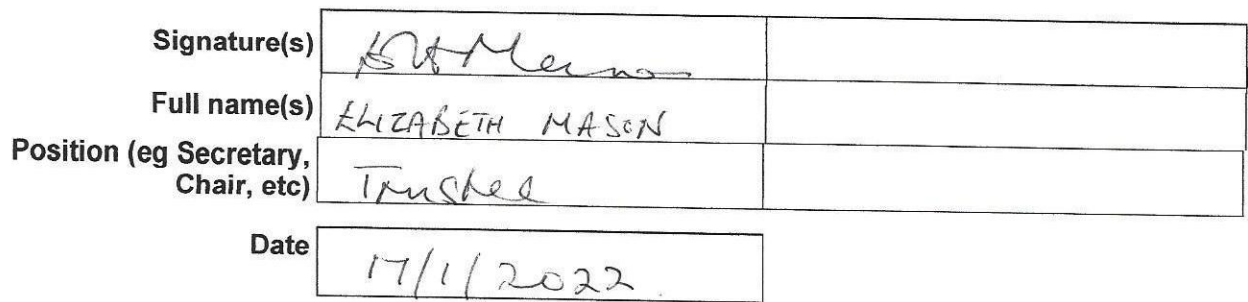 Signature(s)
Full name(s) ELIZABETH MASON
Position (eg Secretary,
Chair, etc) Trustee
Date 17/1/2022